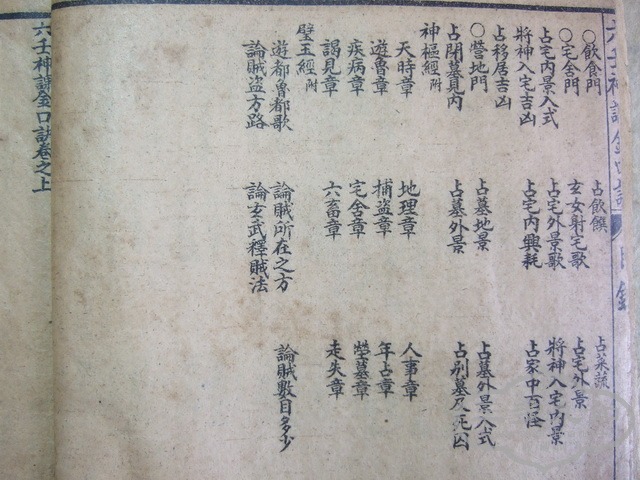 六壬神課金口訣 目錄
○飲食門 占飲饌 占菜蔬
○宅舍門 玄女射宅歌 占宅外景
占宅內景入式 占宅外景歌 將神入宅內景
將神入宅吉凶 占宅內興耗 占家中百怪
占移居吉凶
○營地門 占墓地景 占墓外景入式
占開墓見內 占墓外景 占別墓及死凶
神樞經附
天時章 地理章 人事章
遊魯章 捕盜章 年占章
疾病章 宅舍章 塋墓章
謁見章 六畜章 走失章
璧玉經附
遊都魯都歌 論賊所在之方 論賊數目多少
論賊盜方路 論玄武釋賊法
六壬神課金口訣卷之上